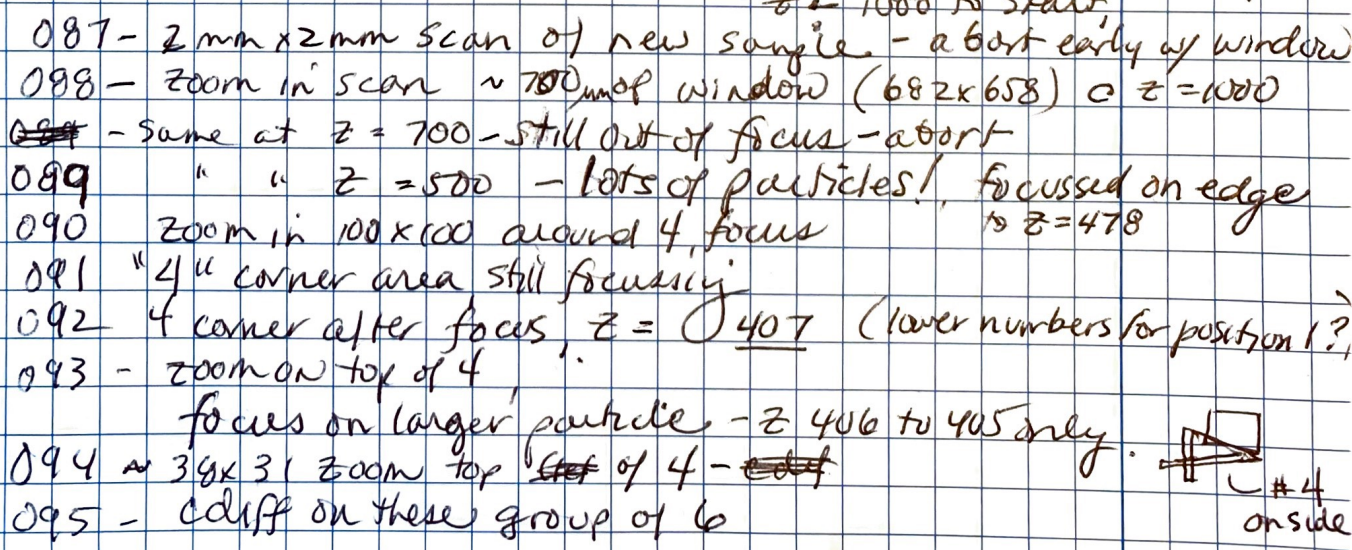 087 - 2mm x 2mm scan of new sample - abort early w/ window
088 - zoom in scan ~ 700µm of window (682x658) @ z=1000
- same at z = 700 - still out of focus - abort
089 " " z = 500 - lots of particles!, focussed on edge
to z=478
090 zoom in 100x100 around 4, focus
091 "4" corner area still focussing
092 4 corner after focus, z = 407 (lower numbers for position 1?)
093 - zoom on top of 4,
focus on larger particle - z 406 to 405 only.
094 ~ 38x31 zoom top of 4 -
#4
on side
095 - cdiff on these group of 6